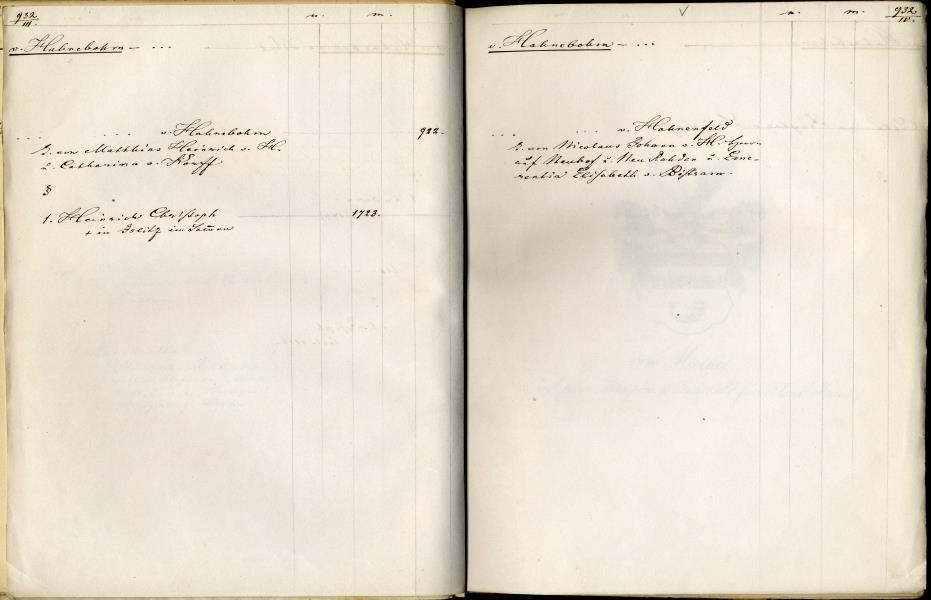 932
III.
n. m.
v. Hahnebohm – ...
... ... v. Hahnebohm 922.
G. von Matthias Heinrich v. H.
u. Catharina v. Korff
§
1. Heinrich Christoph 1723.
+ in
n. m. 932
IV.
v. Hahnebohm – ...
... ... v. Hahnenfeld
G. von Nicolaus Johann v. H.
auf Neuhof u. Neu Rahden u. Eme-
rentia Elisabeth v. Bistram.